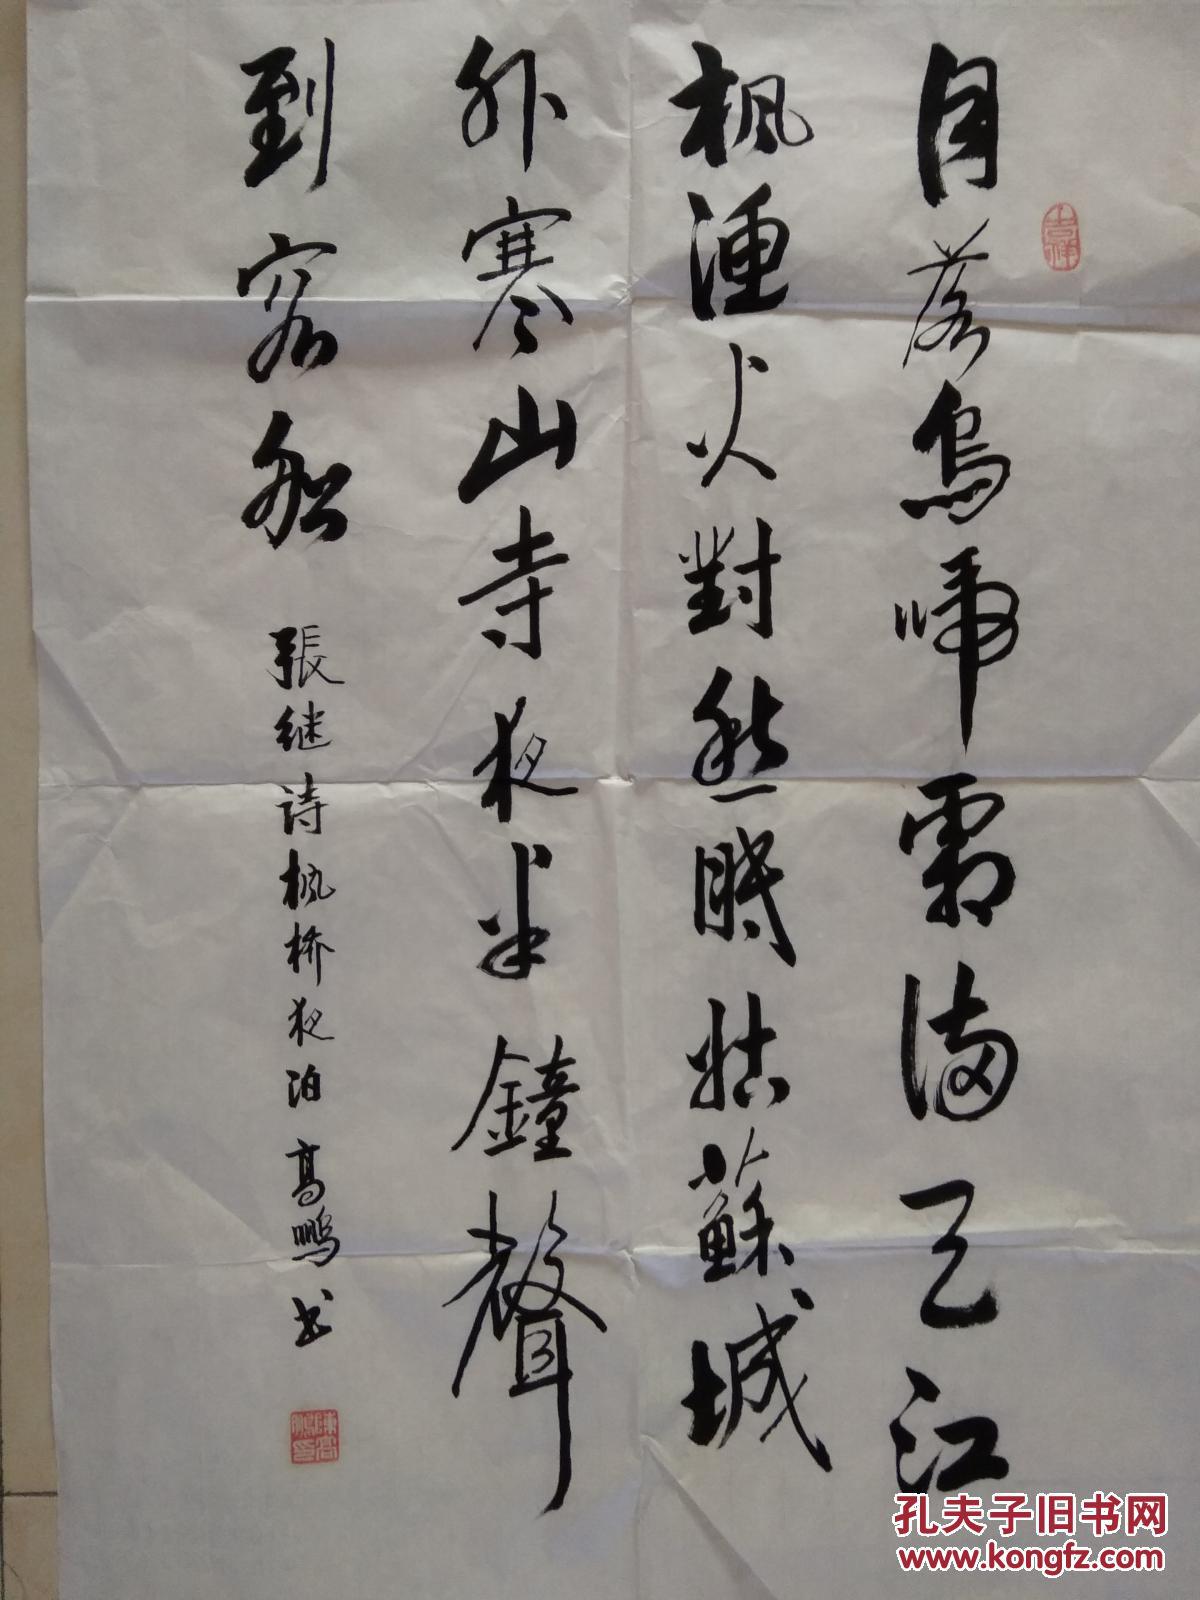 月落烏啼霜滿天江
枫漁火對愁眠姑蘇城
外寒山寺夜半鐘聲
到客船 張继诗枫桥夜泊 高鹏书
吉祥
陳高鵬印
孔夫子旧书网
www.kongfz.com